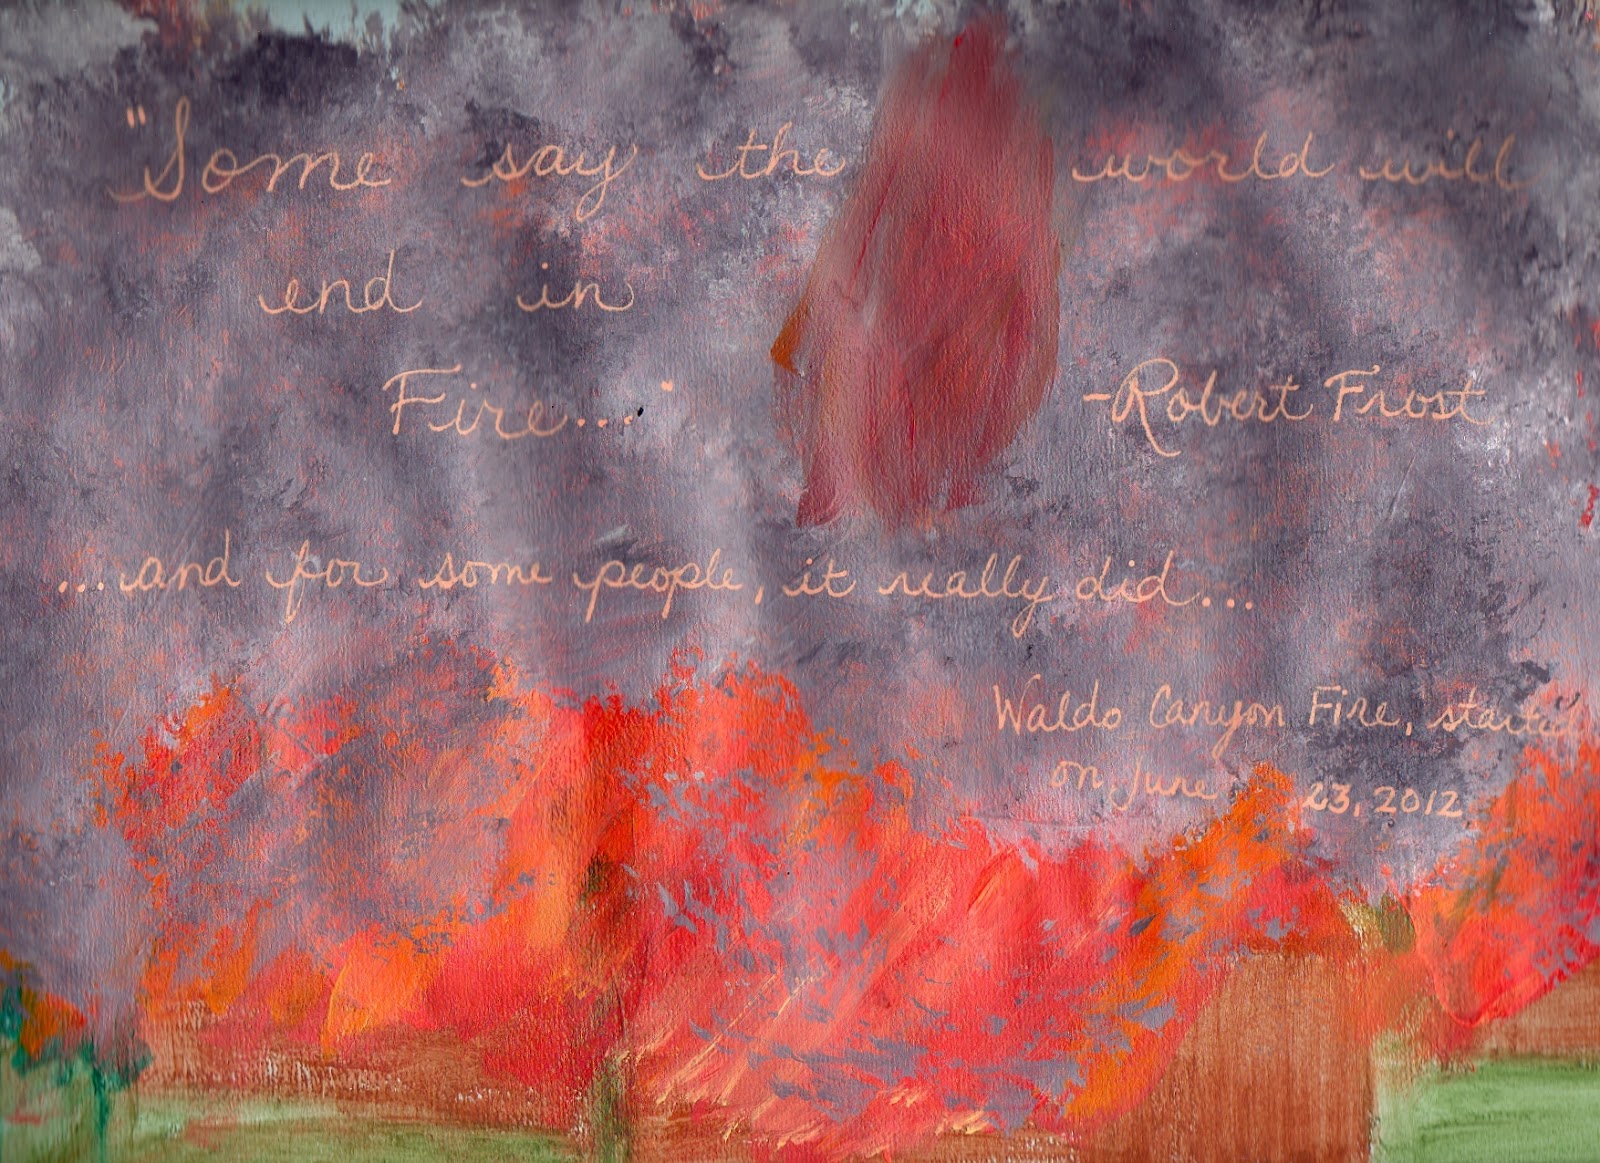 "Some say the world will
end in
Fire..."
-Robert Frost
...and for some people, it really did...
Waldo Canyon Fire, started
on June 23, 2012